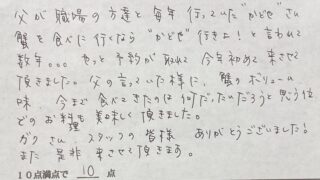 父が職場の方達と毎年行っていた"かどや"さん
蟹を食べに行くなら"かどや"行きよ!と言われて
数年。。。やっと予約が取れて今年初めて来させて
頂きました。父の言っていた様に、蟹のボリューム
味、今まで食べてきたのは何だったんだろうと思う位
どのお料理も美味しく頂きました。
さん、スタッフの皆様 ありがとうございました!
また是非来させて頂きます。
10点満点で 10 点